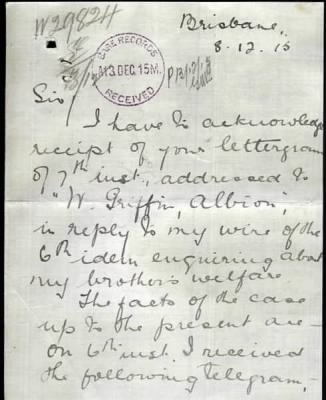 W2982H
Brisbane,
8.12.15
BASE RECORDS
M13 DEC. 15M.
RECEIVED
Sir/
I have to acknowledge
receipt of your lettergram
of 7th inst., addressed to
"W. Griffin, Albion",
in reply to my wire of the
6th idem enquiring about
my brother's welfare.
The facts of the case
up to the present are –
on 6th inst. I received
the following telegram, –